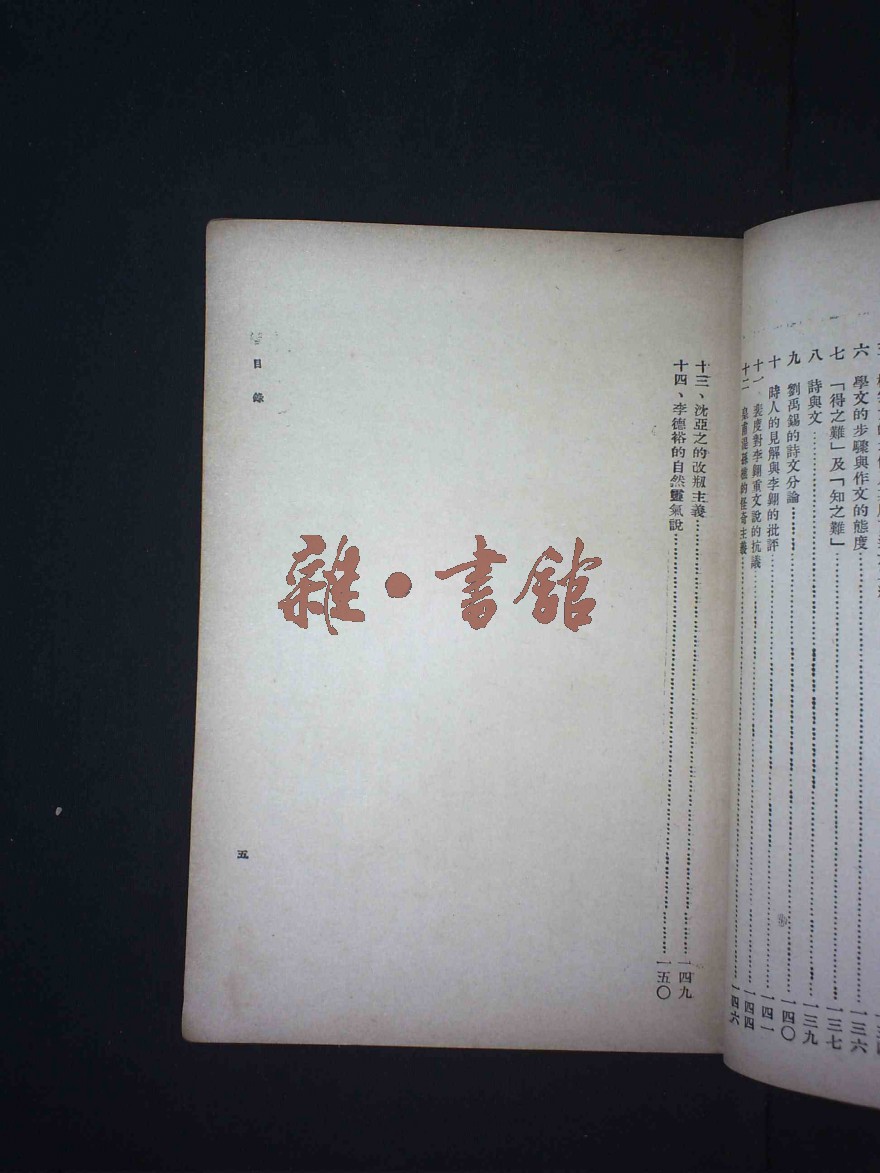 六 學文的步驟與作文的態度……一三六
七 「得之難」及「知之難」……一三七
八 詩與文……一三九
九 劉禹錫的詩文分論……一四〇
十 時人的見解與李翺的批評……一四一
十一 裴度對李翺重文說的抗議……一四四
十二 皇甫湜孫樵的怪奇主義……一四六
十三、沈亞之的改瓶主義……一四九
十四、李德裕的自然靈氣說……一五〇
目錄
五
雜·書舘